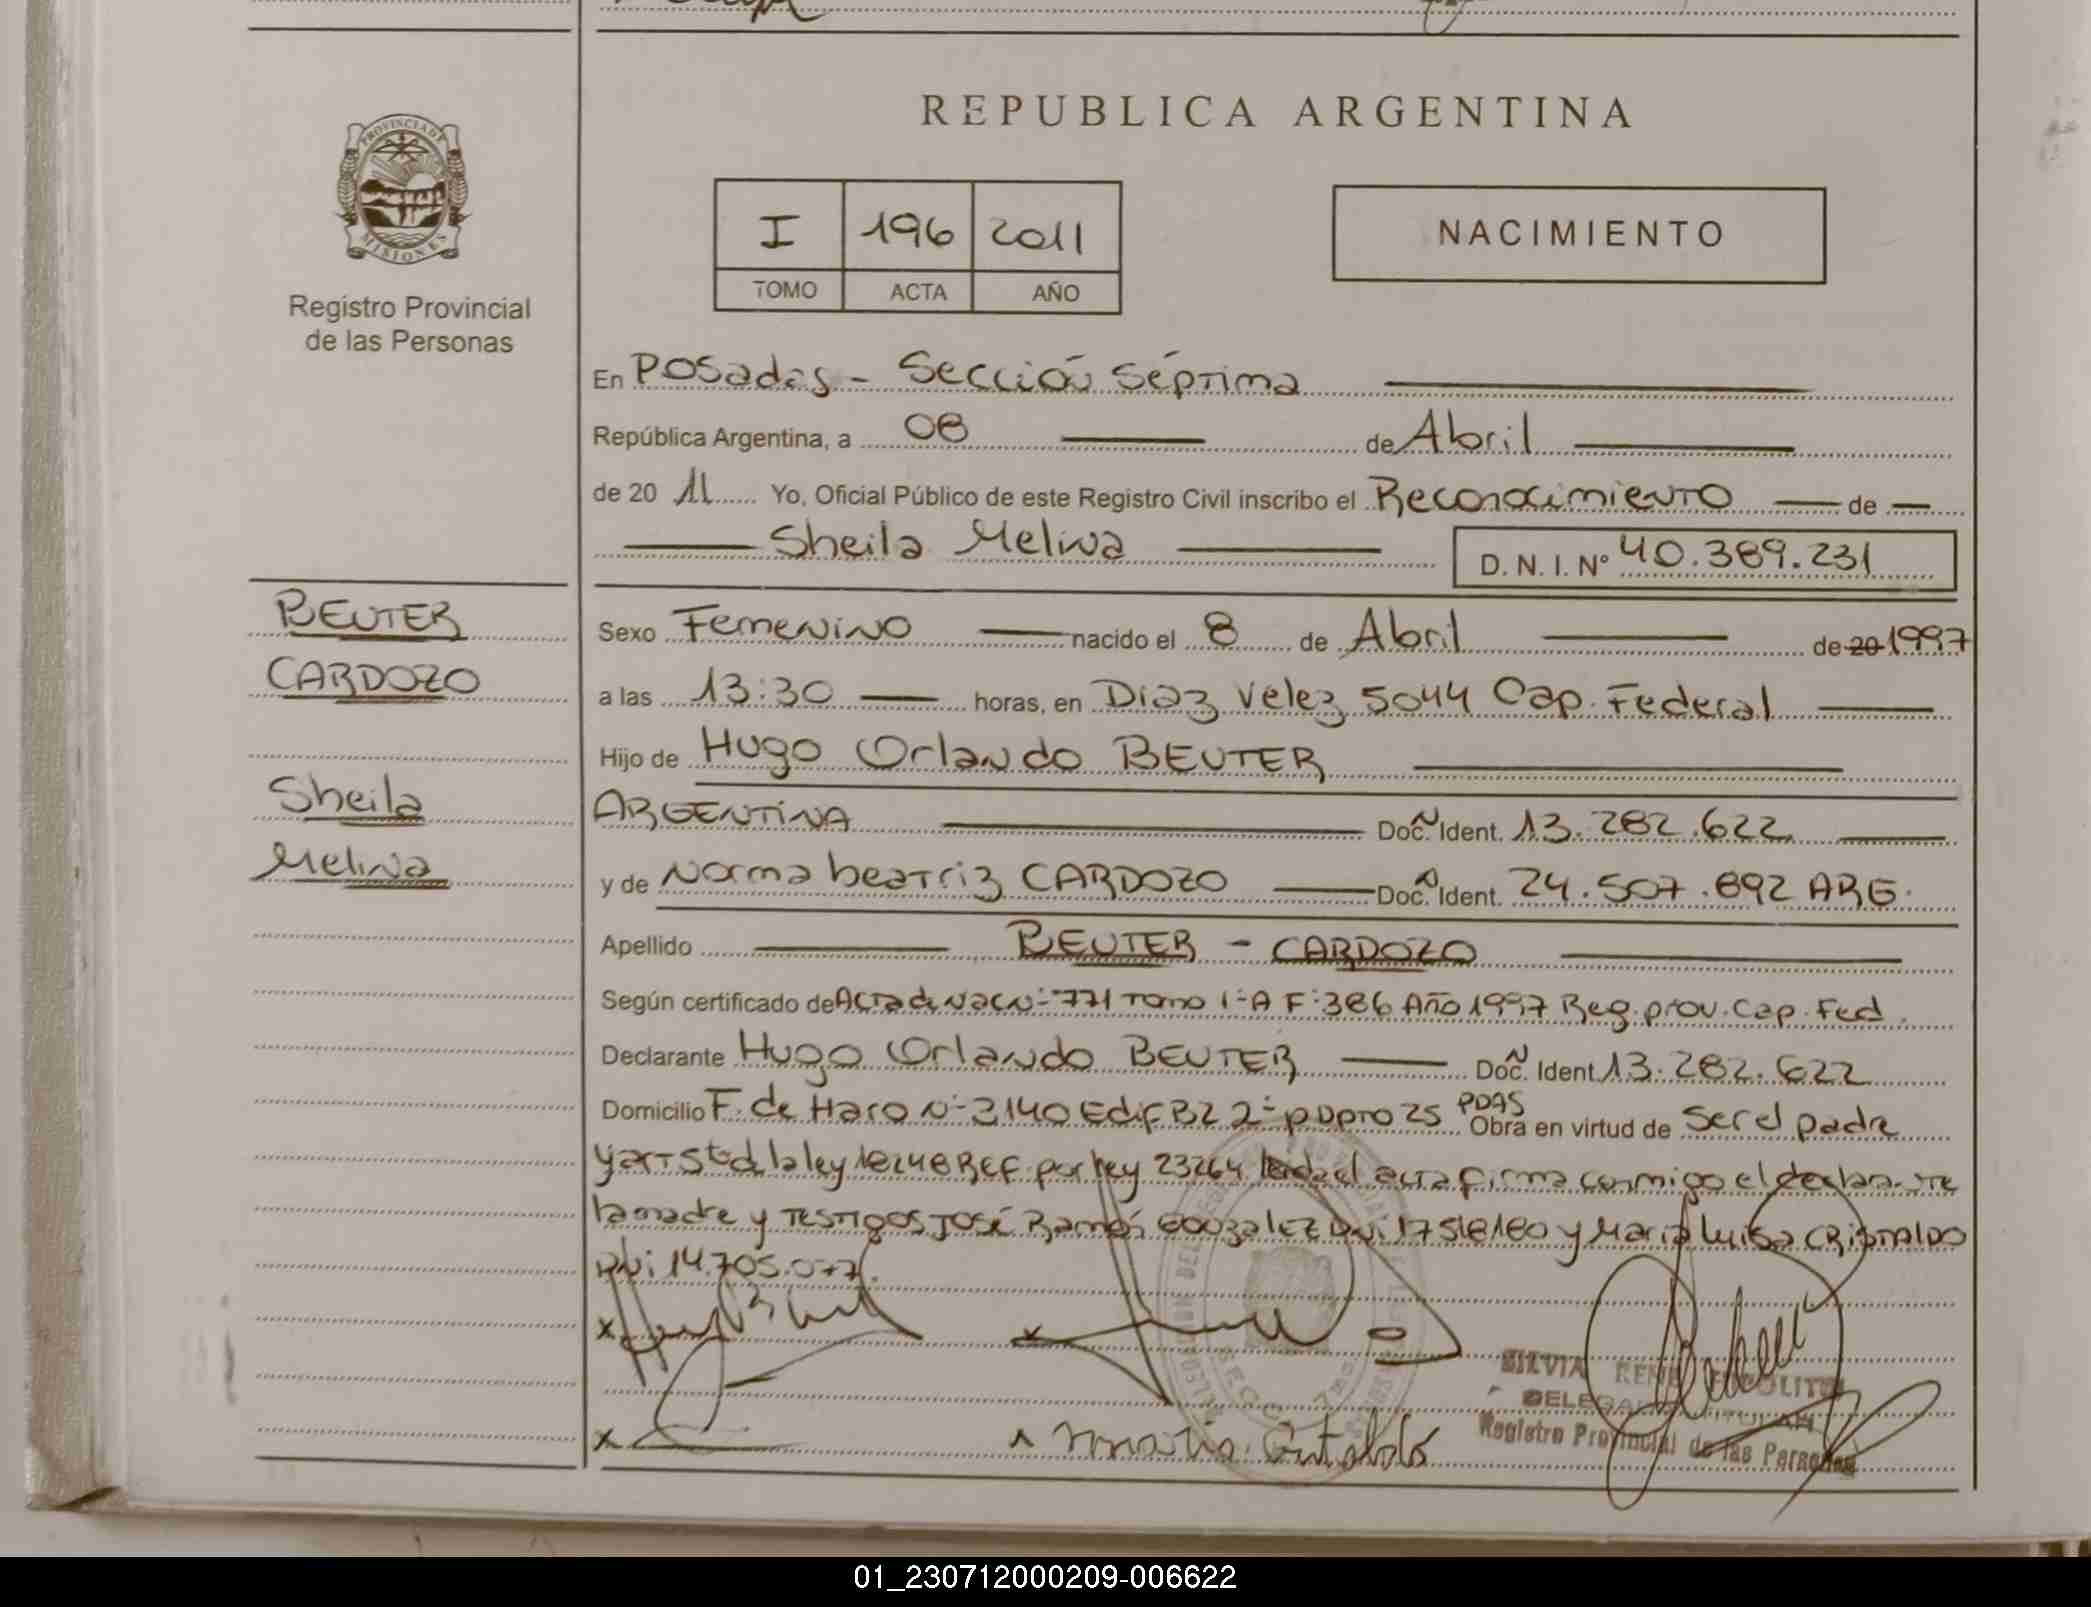 REPUBLICA ARGENTINA
PROVINCIA DE
MISIONES
Registro Provincial
de las Personas
I 196 2011
TOMO ACTA AÑO
NACIMIENTO
En Posadas - Sección Séptima
República Argentina, a 08 de Abril
de 20 11 Yo, Oficial Público de este Registro Civil inscribo el Reconocimiento de
Sheila Melina
D. N. I. Nº 40.389.231
BEUTER
CARDOZO
Sheila
Melina
Sexo Femenino nacido el 8 de Abril de 20 1997
a las 13:30 horas, en Diaz Velez 5044 Cap. Federal
Hijo de Hugo Orlando BEUTER
ARGENTINA Doc. Ident. 13.282.622
y de Norma beatriz CARDOZO Doc. Ident. 24.507.892 ARG.
Apellido BEUTER - CARDOZO
Según certificado de Acta de Nac Nº 771 Tomo 1º A Fº 386 Año 1997 Reg. prov. Cap. Fed.
Declarante Hugo Orlando BEUTER Doc. Ident. 13.282.622
Domicilio F. de Haro Nº 3140 Edif B2 2º p Dpto 25 PDAS Obra en virtud de Ser el padre
y art 5 de la ley 18248 Ref. por ley 23264 leida el acta firma conmigo el declarante
la madre y testigos José Ramón Gonzalez Dni 17518180 y Maria Luisa CRISTALDO
Dni 14.705.077.
x
x
x
SILVIA RENE
DELEGADA TITULAR
Registro Provincial de las Personas
01_230712000209-006622